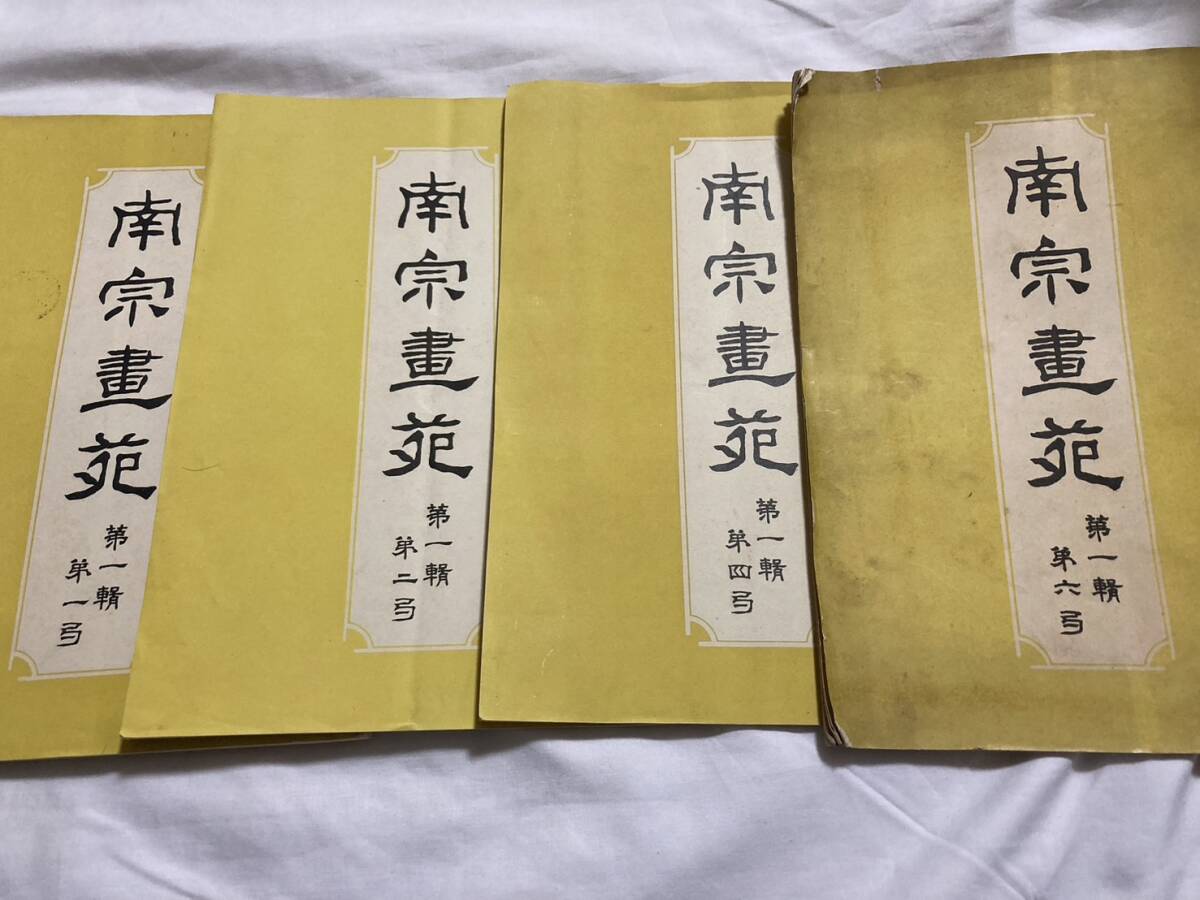 南宗畫苑
第一輯
第一弓
南宗畫苑
第一輯
第二弓
南宗畫苑
第一輯
第四弓
南宗畫苑
第一輯
第六弓